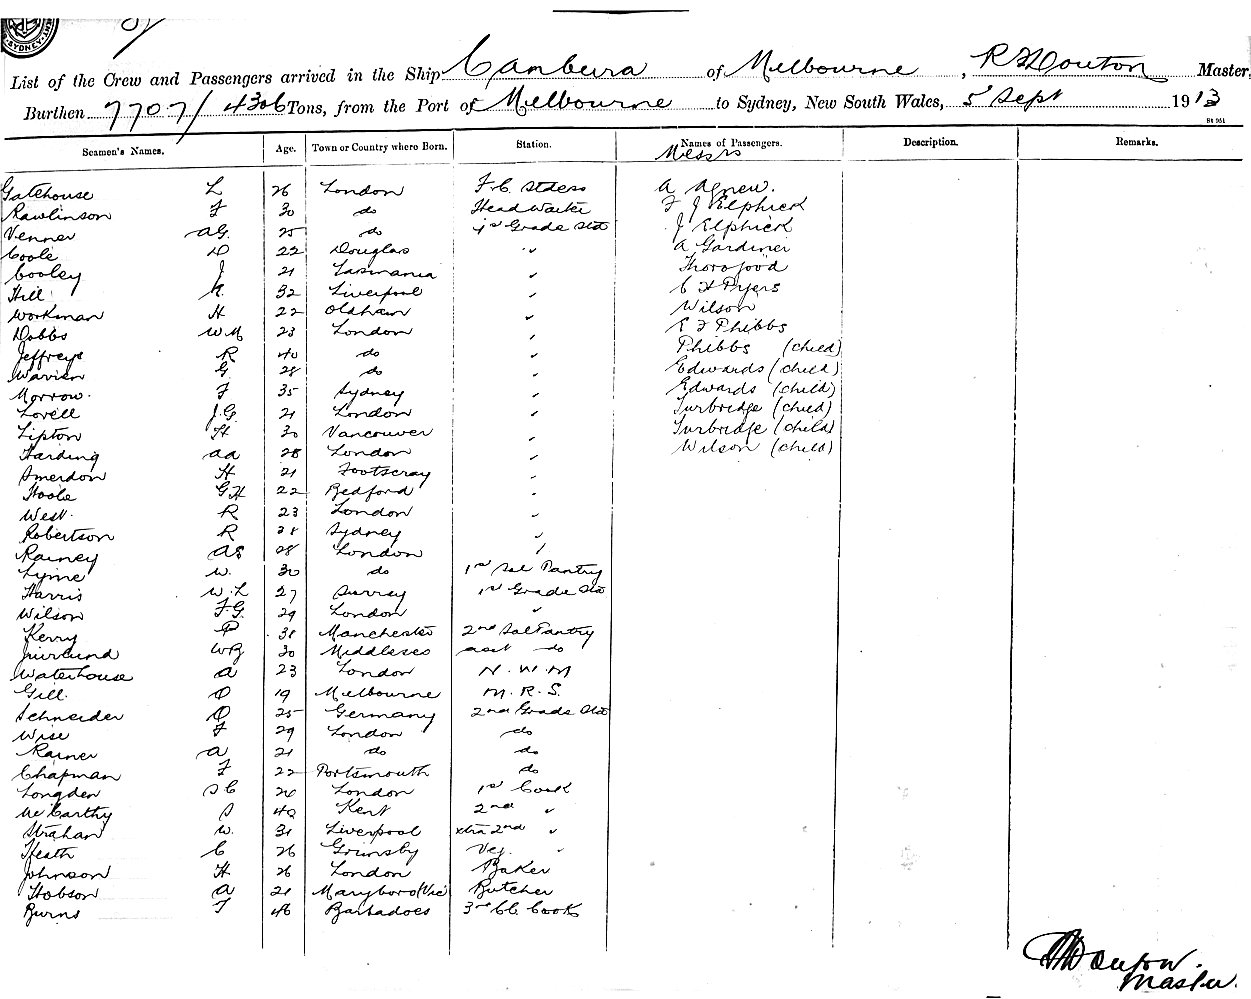 SYDNEY
List of the Crew and Passengers arrived in the Ship Canberra of Melbourne, Master,
Burthen 7707/4306 Tons, from the Port of Melbourne to Sydney, New South Wales, 5 Sept 1913
St 951
Seamen's Names. Age. Town or Country where Born. Station. Names of Passengers. Description. Remarks.
Messrs
Gatehouse L 26 London F.C. Stdess A Agnew.
Rawlinson F 30 do Head Waiter F J Elphick
Venner AG 25 do 1st Grade Std J Elphick
Coole D 22 Douglas " A Gardiner
Cooley J 21 Tasmania " Thorogood
Hill K. 32 Liverpool " C H Pyers
Workman H 22 Oldham " Wilson
Dobbs WM 23 London " E F Phibbs
Jeffreys R 40 do " Phibbs (child)
Warren G 28 do " Edwards (child)
Morrow. F 35 Sydney " Edwards (child)
Lovell J.G. 21 London " Turbridge (child)
Lipton H 30 Vancouver " Turbridge (child)
Harding AA 28 London " Wilson (child)
Amerdon H 21 Footscray "
Hoole GH 22 Bedford "
West. R 23 London "
Robertson R 38 Sydney "
Rainey AS 28 London "
Lyme W. 30 do 1st Sal Pantry
Harris W.L 27 Surrey 1st Grade Std
Wilson F.G. 29 London "
Kerry P 31 Manchester 2nd Sal Pantry
WB 30 Middlesex asst do
Waterhouse A 23 London N.W.M
Gill. O 19 Melbourne M.R.S.
Schneider O 25 Germany 2nd Grade Std
Wise F 29 London do
Rainer A 21 do do
Chapman F 22 Portsmouth do
Longden SC 26 London 1st Cook
McCarthy S 40 Kent 2nd "
Strahan W. 31 Liverpool xtra 2nd "
Heath C 26 Grimsby Veg. "
Johnson H 26 London Baker
Hobson A 21 Maryboro (Vic) Butcher
Burns T 46 Barbadoes 3rd Cl Cook
Master.